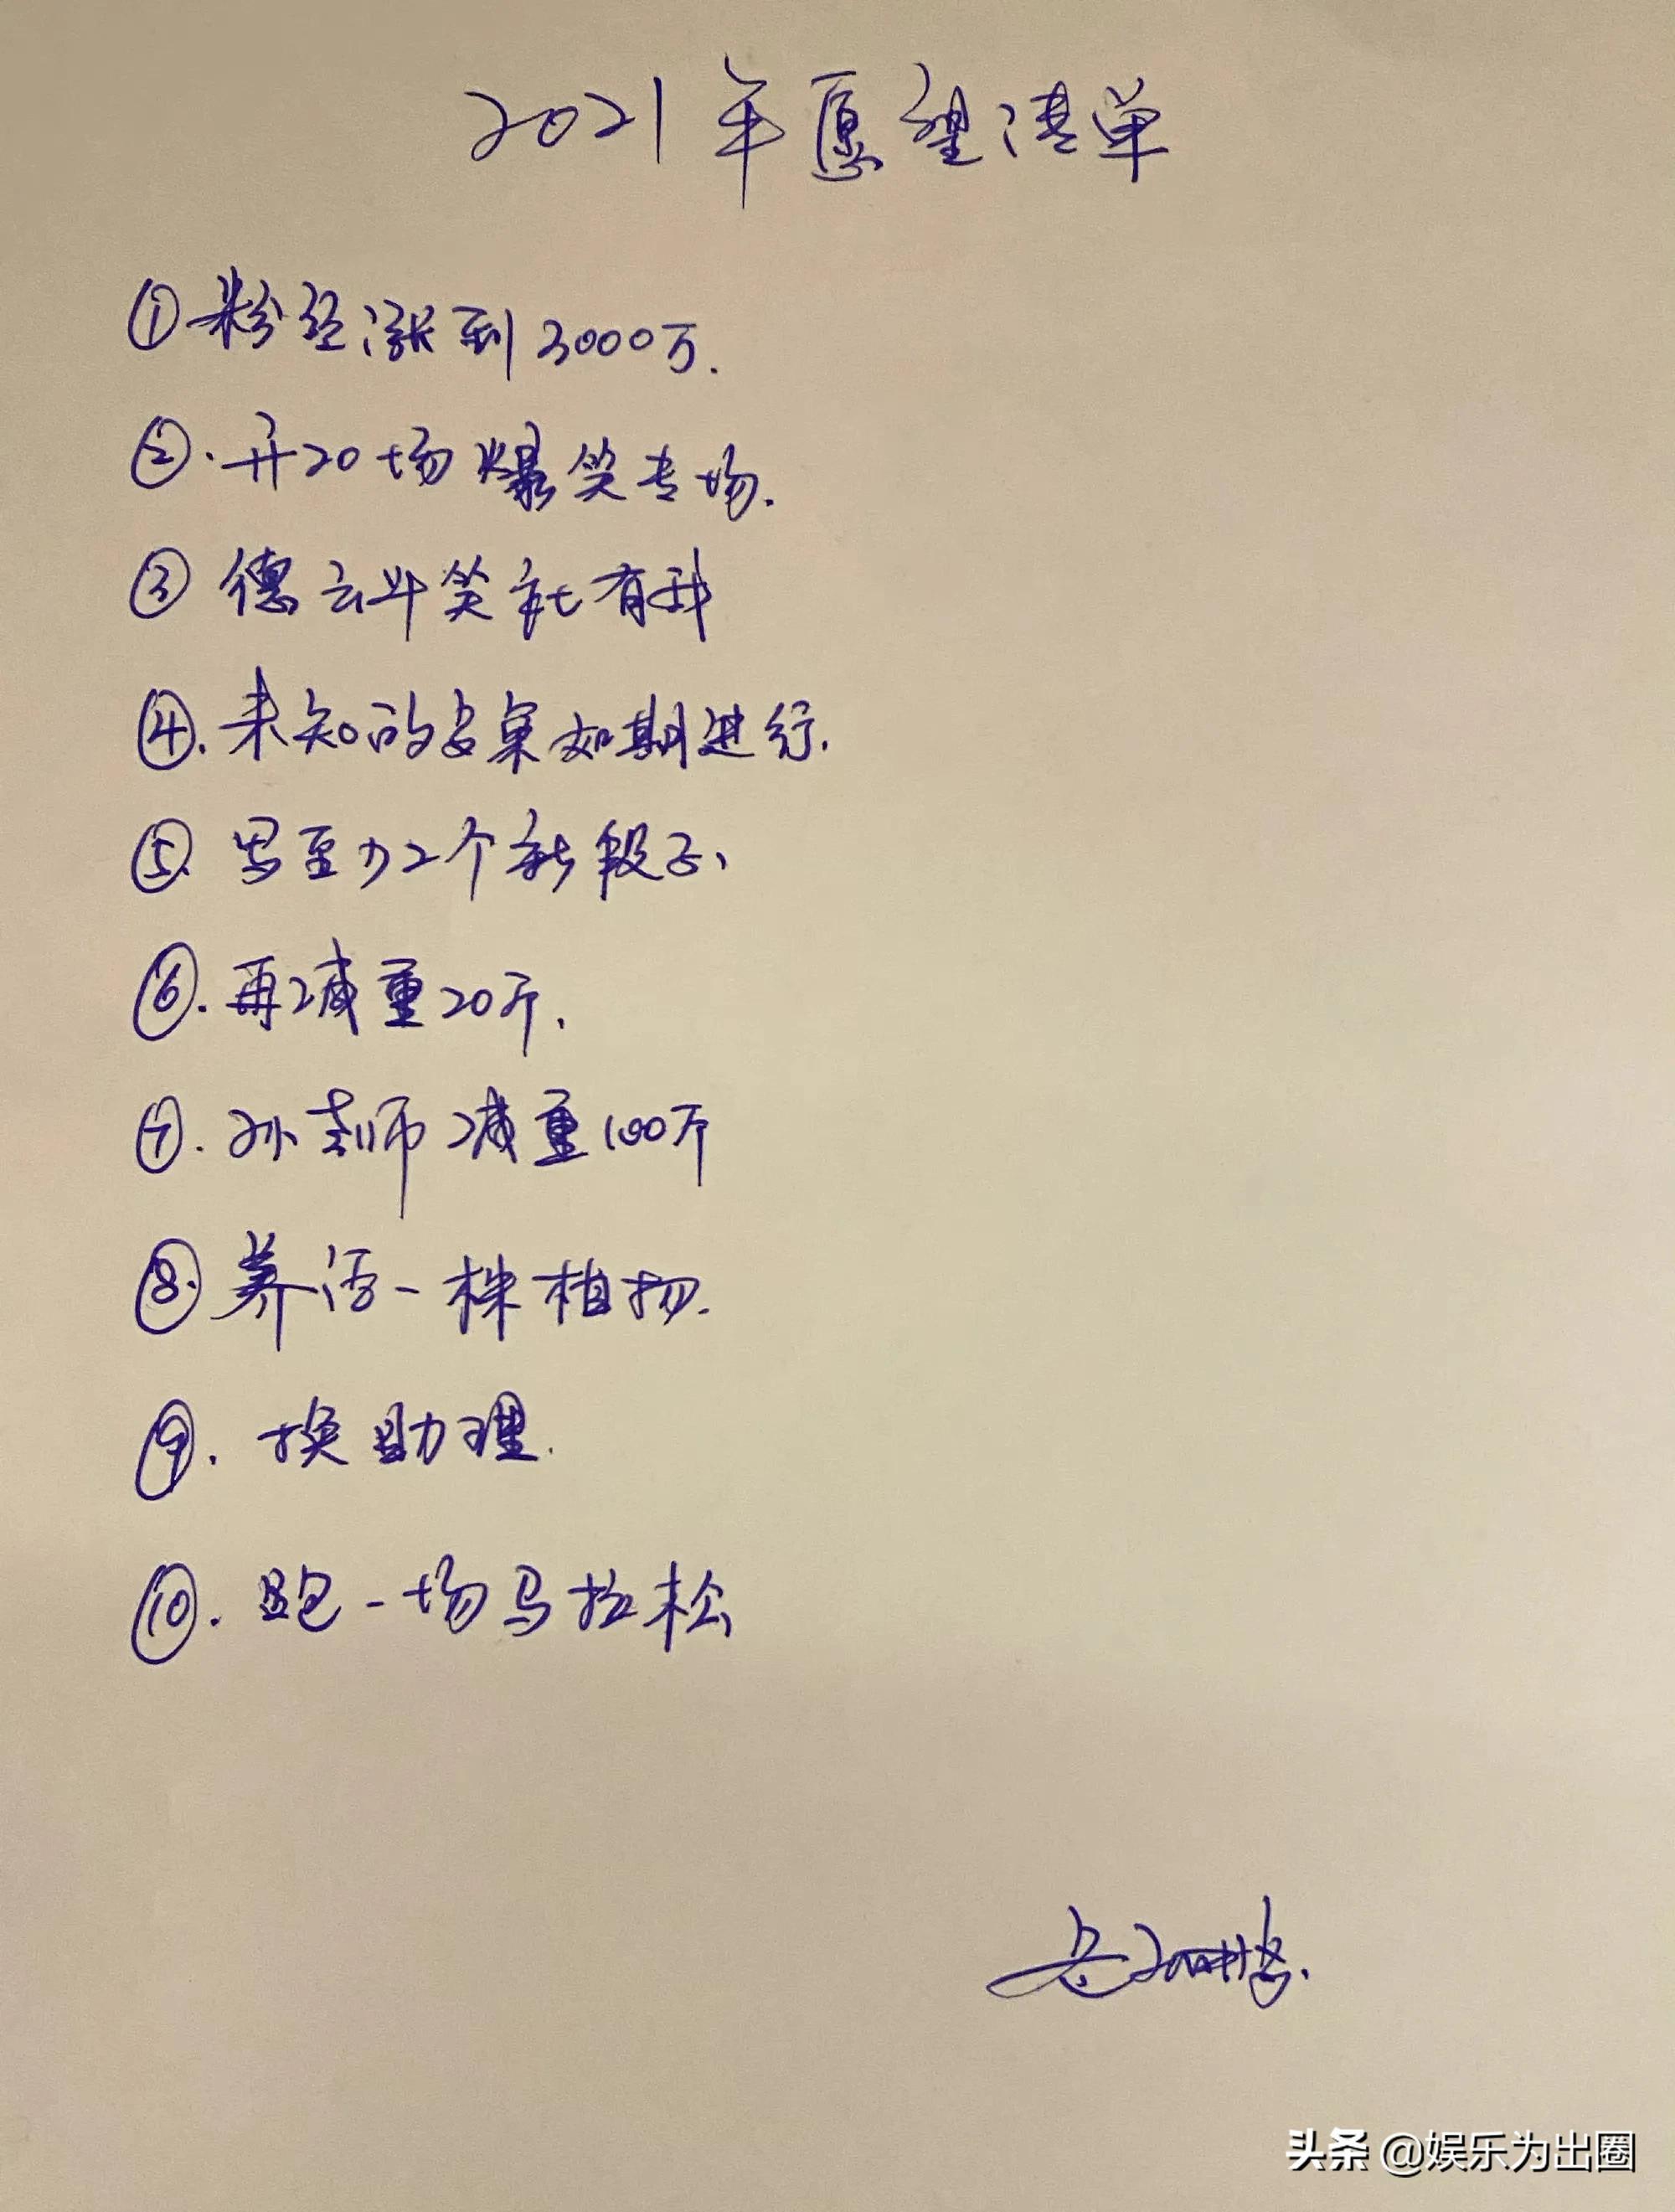 2021年愿望清单
①粉丝涨到3000万.
②.开20场爆笑专场.
③德云斗笑社有我
④.未知的安桌如期进行.
⑤写至少2个新段子、
⑥.再减重20斤.
⑦.孙老师减重100斤
⑧养活一株植物.
⑨.换助理.
⑩.跑一场马拉松
岳云鹏.
头条 @娱乐为出圈